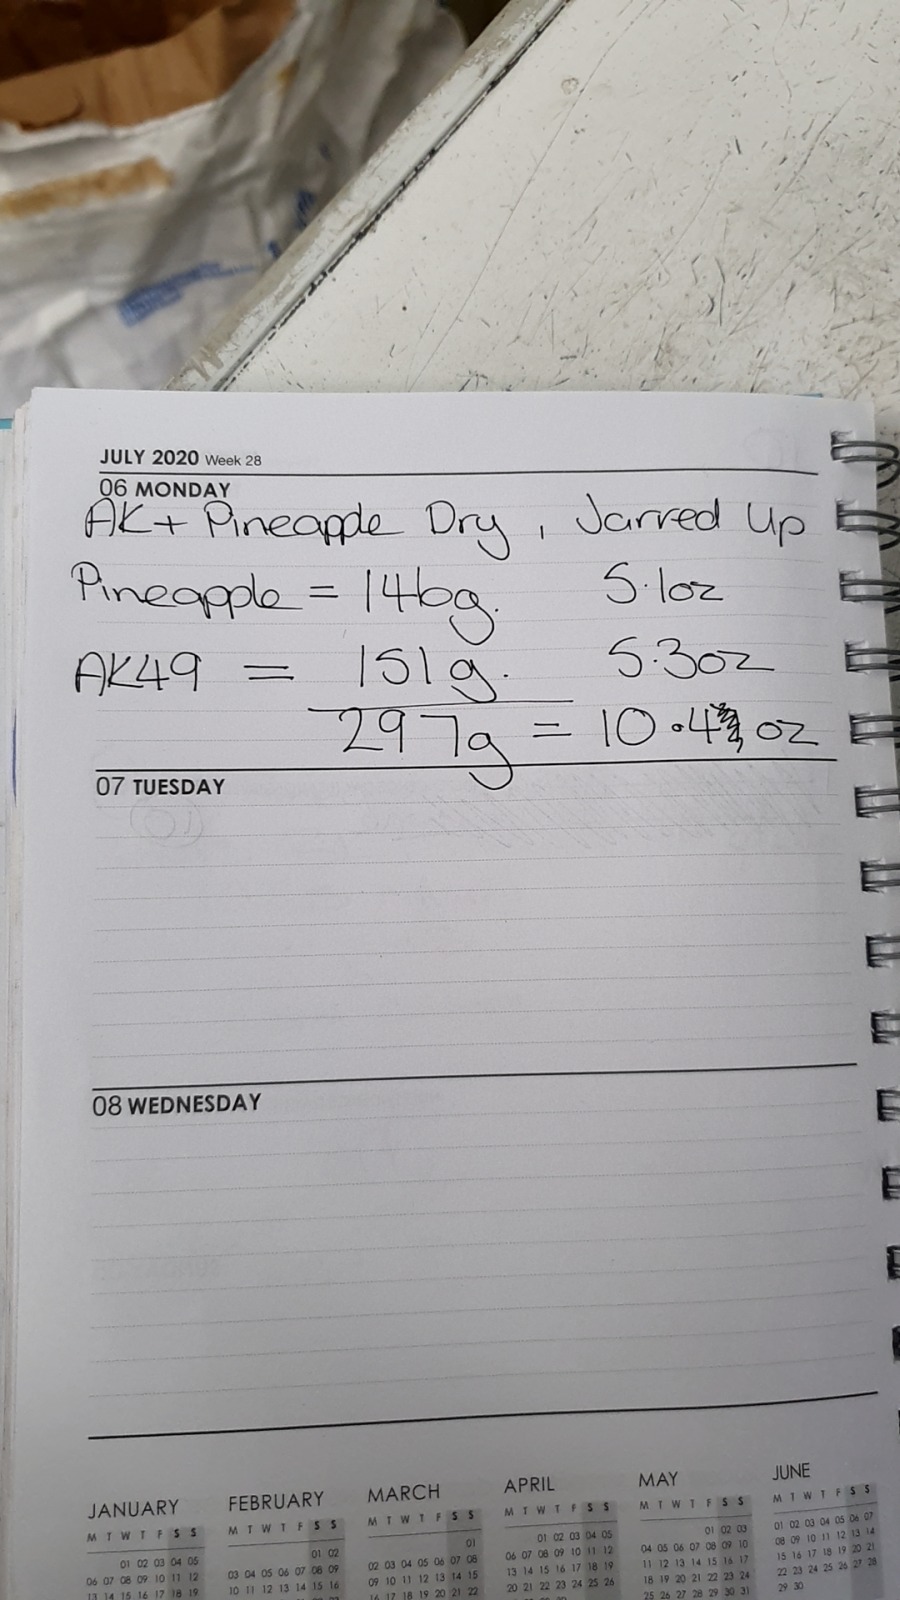 JULY 2020 Week 28
06 MONDAY
AK + Pineapple Dry, Jarred Up
Pineapple = 146g. 5.1oz
AK49 = 151g. 5.3oz
297g = 10.4 oz
07 TUESDAY
08 WEDNESDAY
JANUARY FEBRUARY MARCH APRIL MAY JUNE
M T W T F S S M T W T F S S M T W T F S S M T W T F S S M T W T F S S M T W T F S S
01 02 03 04 05 01 02 01 01 02 03 04 05 01 02 03 01 02 03 04 05 06 07
06 07 08 09 10 11 12 03 04 05 06 07 08 09 02 03 04 05 06 07 08 06 07 08 09 10 11 12 04 05 06 07 08 09 10 08 09 10 11 12 13 14
13 14 15 16 17 18 19 10 11 12 13 14 15 16 09 10 11 12 13 14 15 13 14 15 16 17 18 19 11 12 13 14 15 16 17 15 16 17 18 19 20 21
16 17 18 19 20 21 22 20 21 22 23 24 25 26 18 19 20 21 22 23 24 22 23 24 25 26 27 28
25 26 27 28 29 30 31 29 30